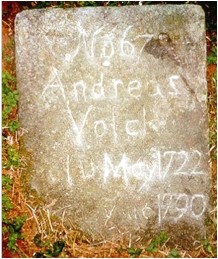 No 67
Andreas
Volck
10 May 1722
1790